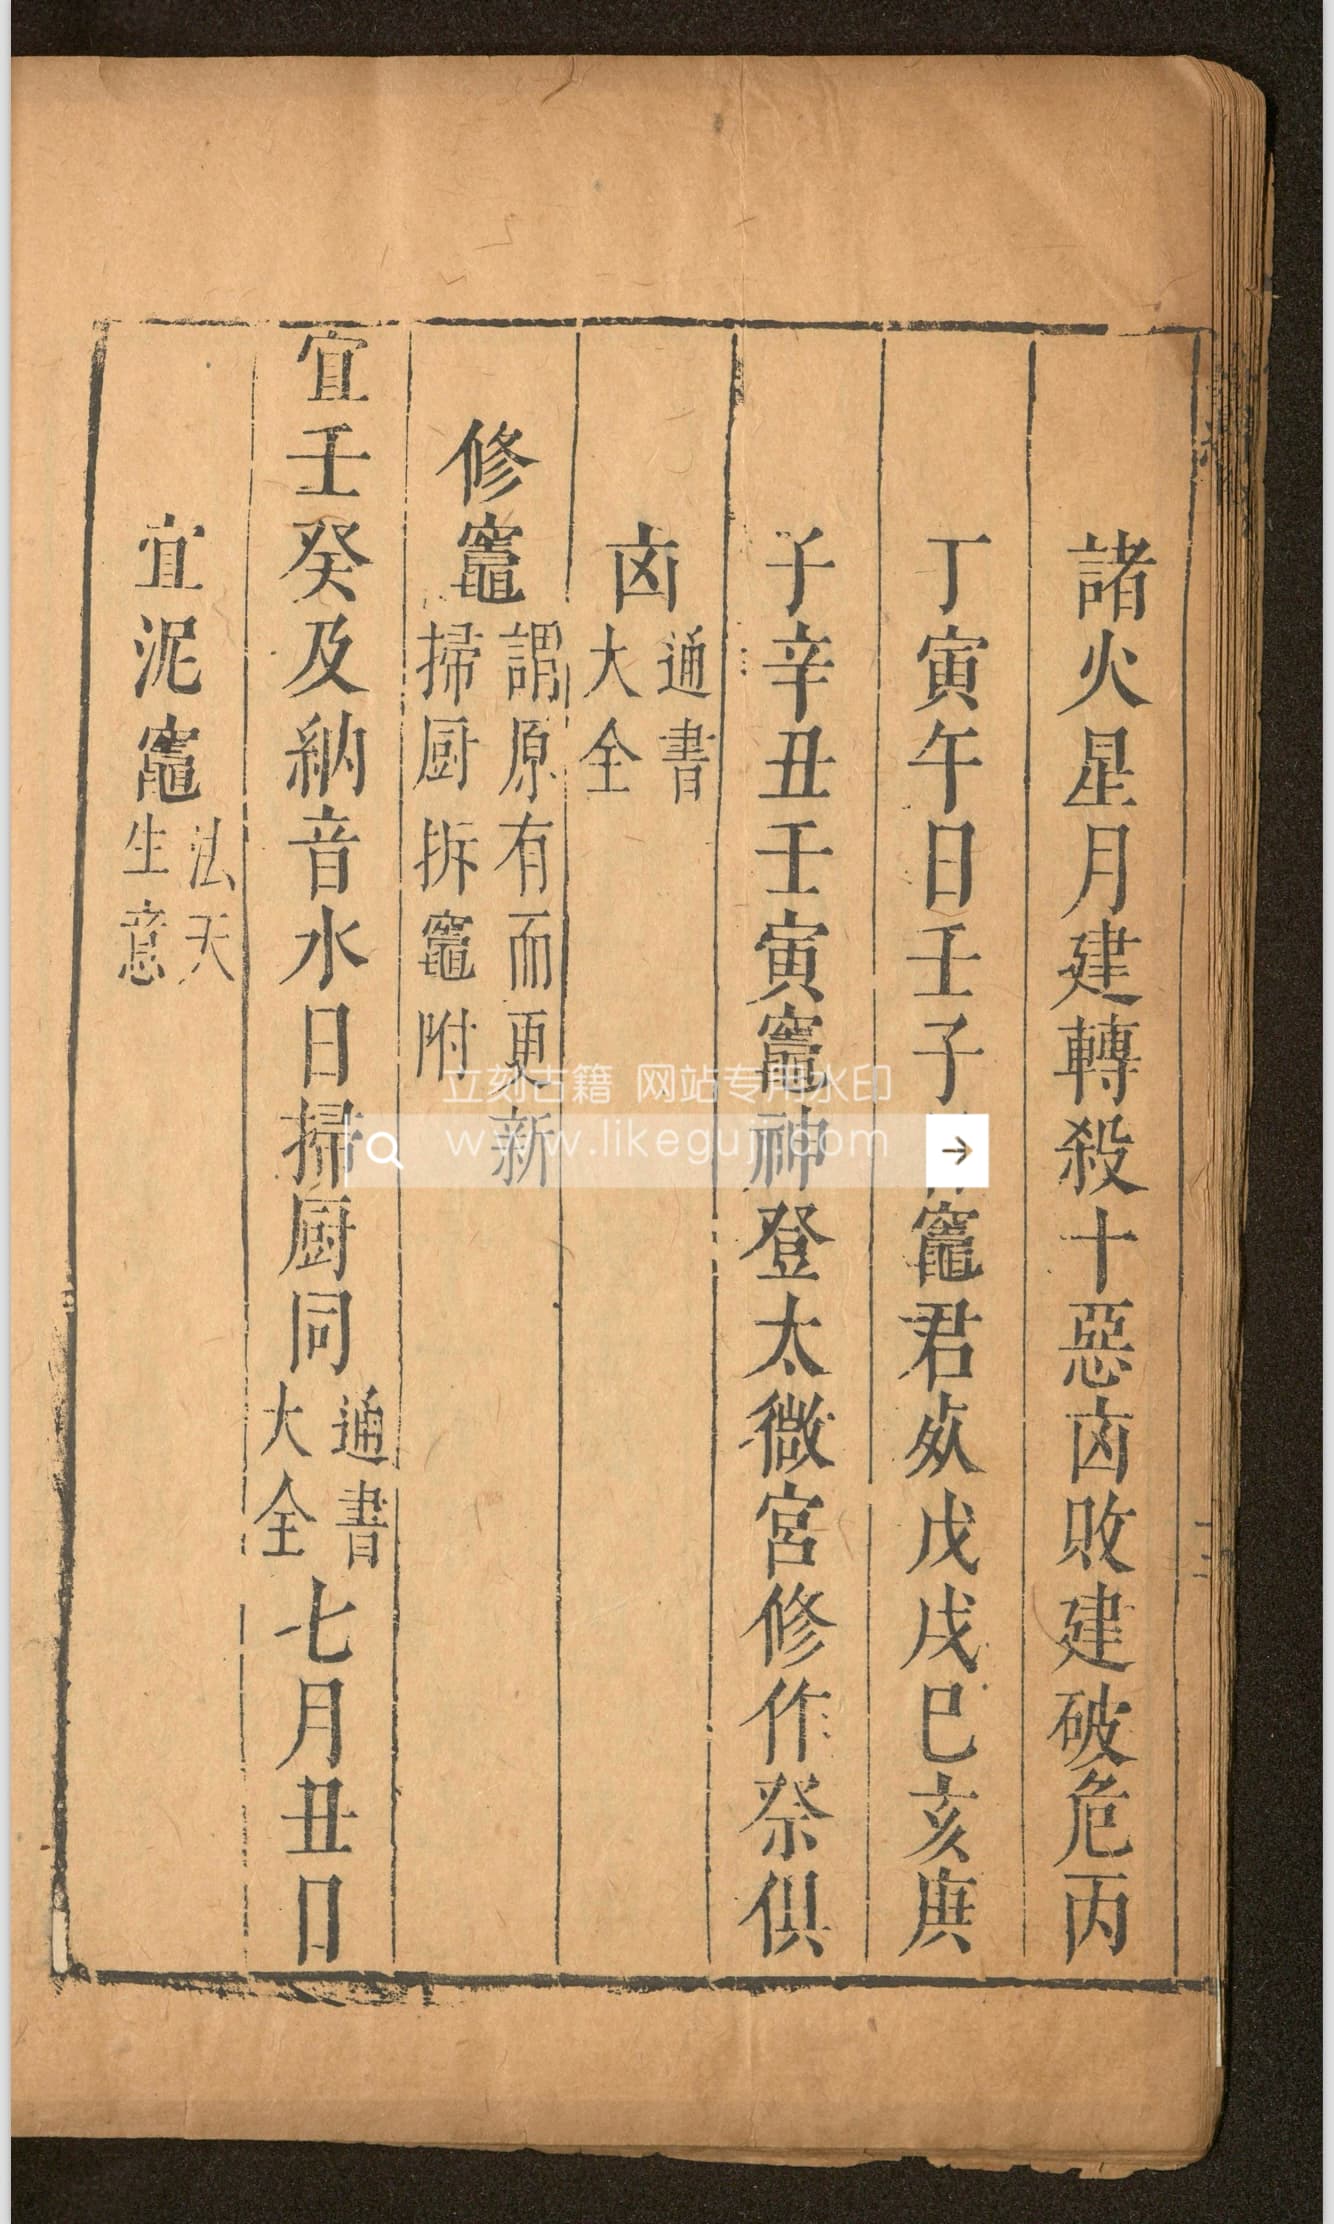 諸火星月建轉殺十惡凶敗建破危丙
丁寅午日壬子竈君死戊戌巳亥庚
子辛丑壬寅竈神登太微宮修作祭俱
凶通書大全
修竈謂原有而更新掃厨拆竈附
宜壬癸及納音水日掃厨同通書大全七月丑日
宜泥竈法天生意
立刻古籍 网站专用水印
www.likeguji.com